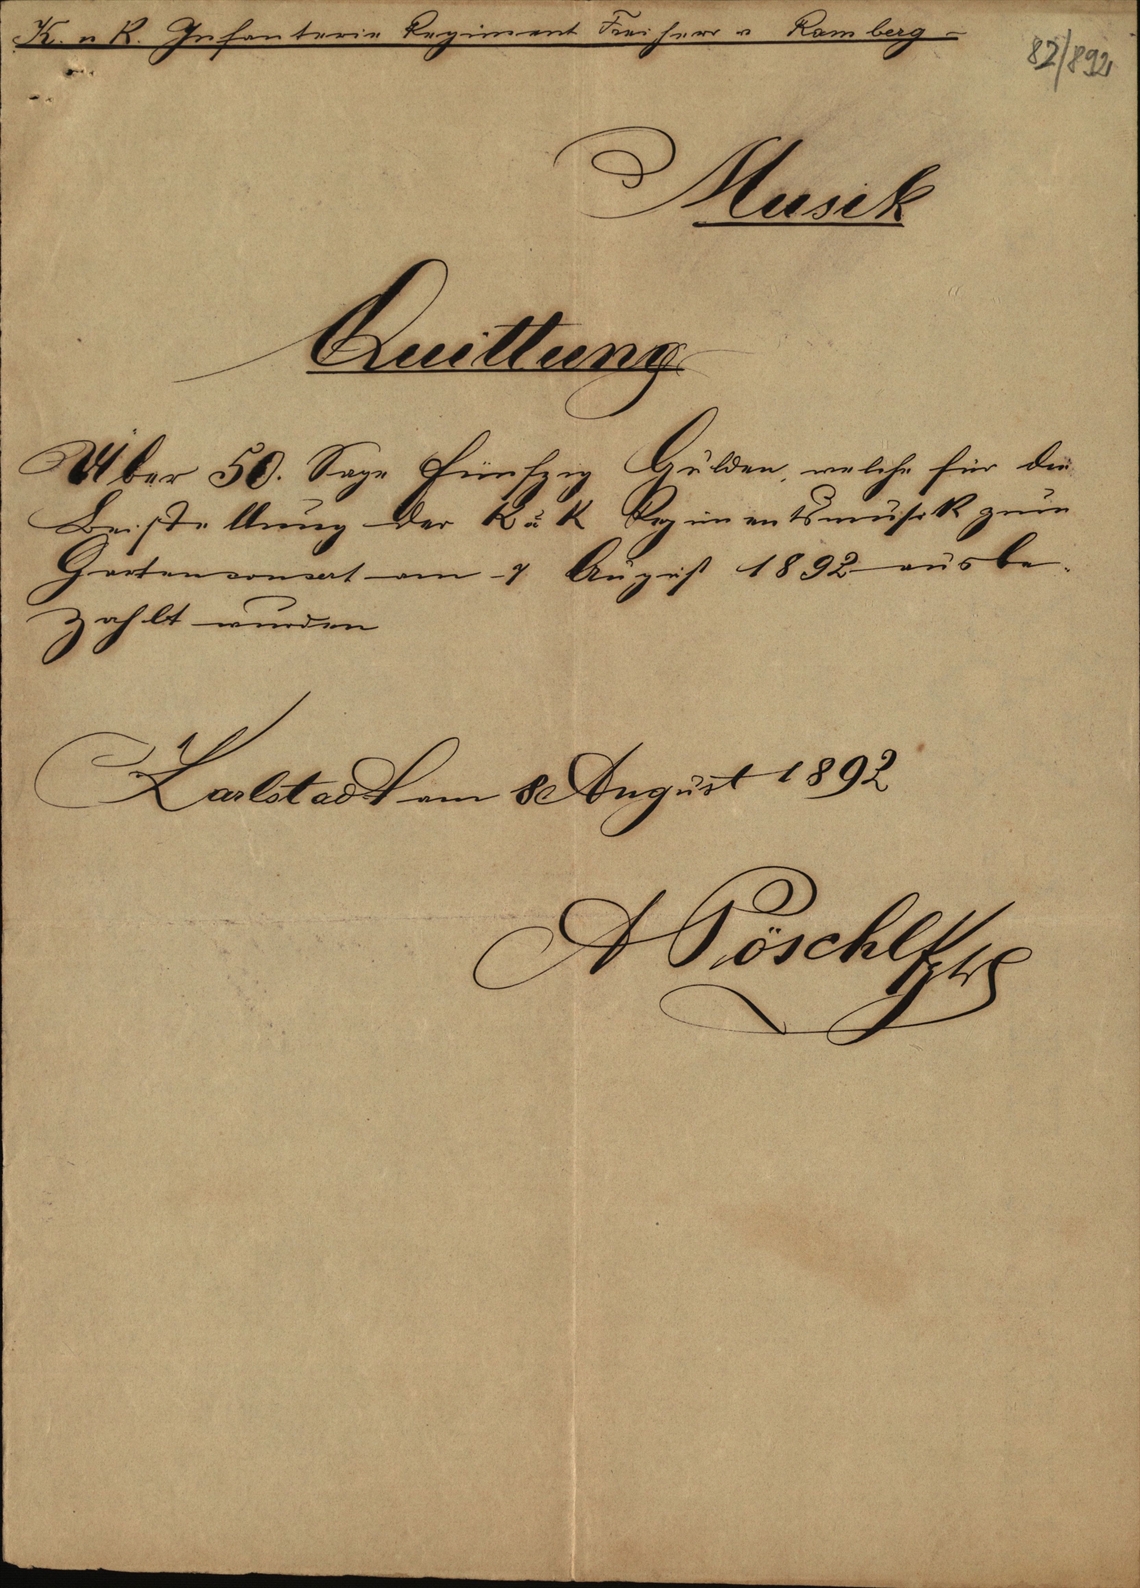 K. u K. Infanterie Regiment Freiherr v Ramberg
82/892
Musik
Quittung
Über 50. Sage fünfzig Gulden, welche für die
Beistellung der K u K Regimentsmusik zum
Gartenconcert am 7 August 1892 ausbe-
zahlt wurden
Karlstadt am 8 August 1892
A Pöschl